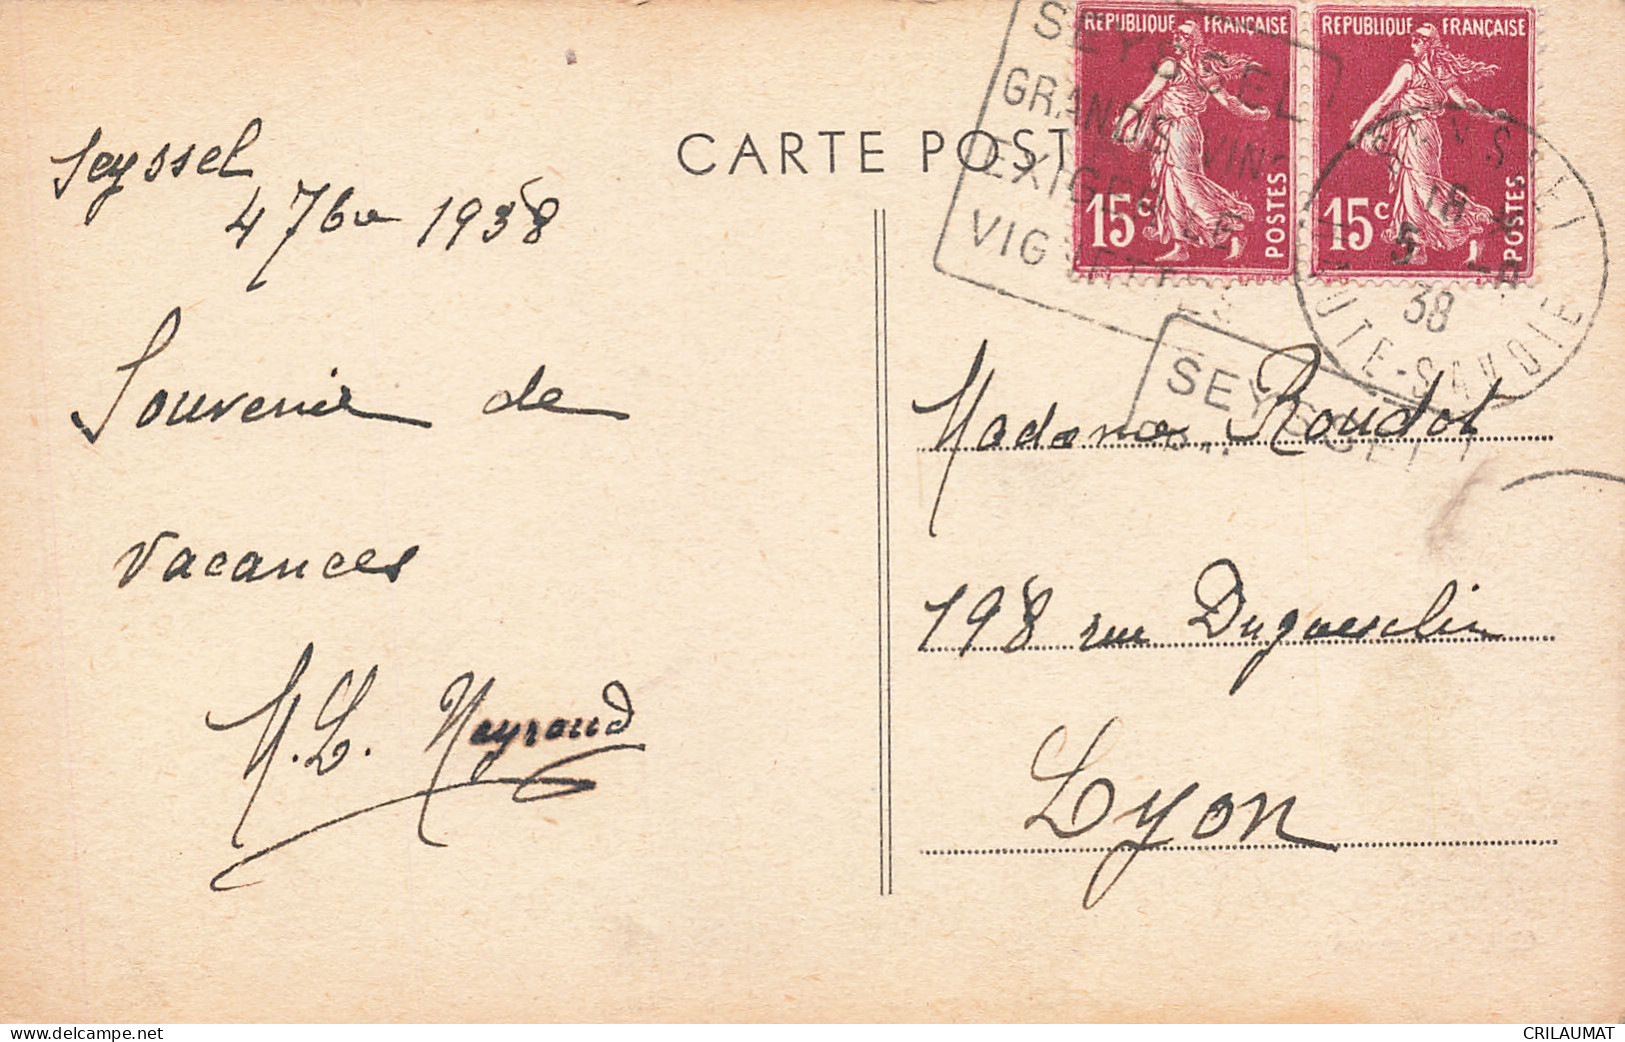 Seyssel
4 7bre 1938
Souvenir de
vacances
M. L. Meyraud
CARTE POST
REPUBLIQUE FRANÇAISE
15c POSTES
REPUBLIQUE FRANÇAISE
15c POSTES
SEYSSEL
GRANDS VINS
EXIGER LE
VIGNETTES
38
HAUTE-SAVOIE
SEYSSEL
Madame Roudot
198 rue Duguesclin
Lyon
www.delcampe.net
CRILAUMAT